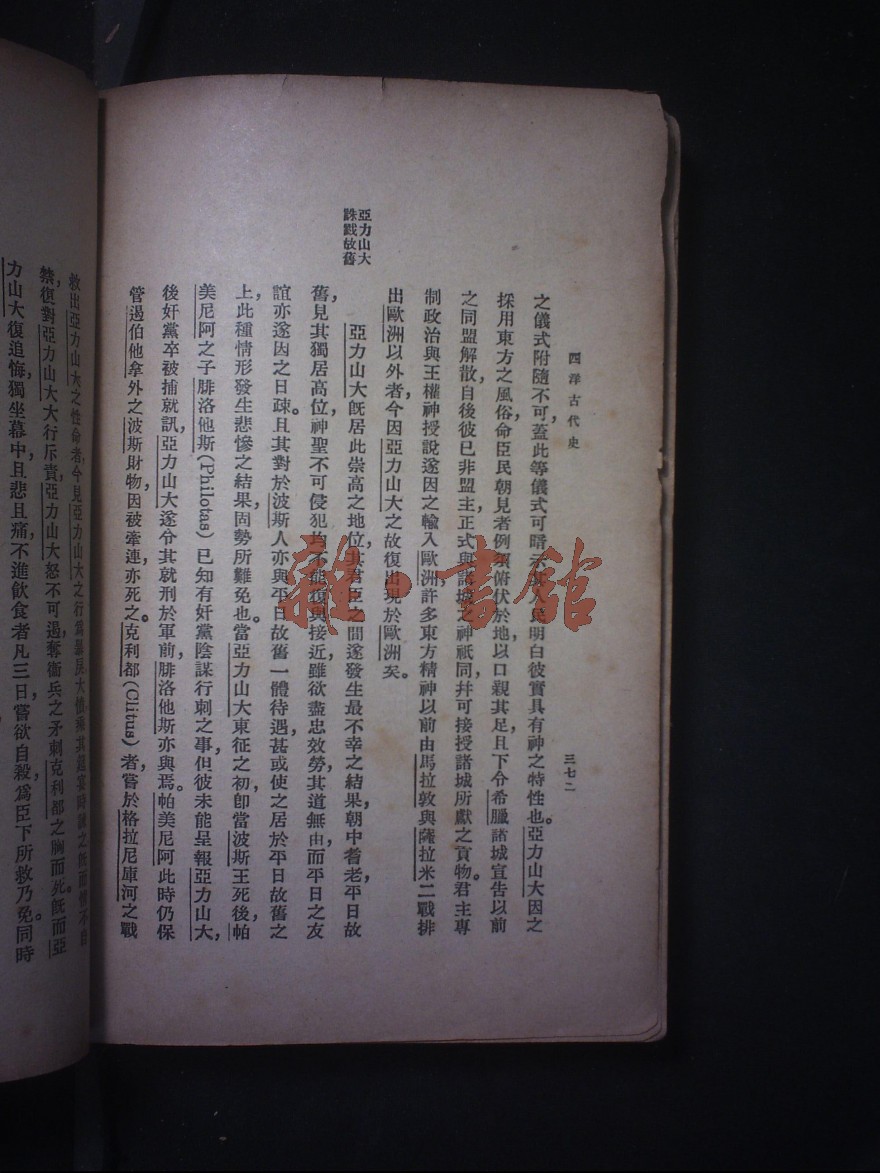 西洋古代史
三七二
之儀式附隨不可，蓋此等儀式可暗示其人民明白彼實具有神之特性也。亞力山大因之
採用東方之風俗，命臣民朝見者例須俯伏於地，以口親其足，且下令希臘諸城宣告以前
之同盟解散，自後彼已非盟主，正式與諸城之神祇同幷可接授諸城所獻之貢物。君主專
制政治與王權神授說遂因之輸入歐洲，許多東方精神以前由馬拉敦與薩拉米二戰排
出歐洲以外者，今因亞力山大之故復出現於歐洲矣。
亞力山大
誅戮故舊
亞力山大旣居此崇高之地位，其君臣之間遂發生最不幸之結果，朝中耆老，平日故
舊，見其獨居高位，神聖不可侵犯，均不能復與接近，雖欲盡忠效勞，其道無由，而平日之友
誼亦遂因之日疎。且其對於波斯人亦與平日故舊一體待遇，甚或使之居於平日故舊之
上，此種情形發生悲慘之結果，固勢所難免也。當亞力山大東征之初，卽當波斯王死後，帕
美尼阿之子腓洛他斯(Philotas)已知有奸黨陰謀行刺之事，但彼未能呈報亞力山大，
後奸黨卒被捕就訊，亞力山大遂令其就刑於軍前，腓洛他斯亦與焉。帕美尼阿此時仍保
管遏伯他拿外之波斯財物，因被牽連，亦死之。克利都(Clitus)者，嘗於格拉尼庫河之戰
救出亞力山大之性命者，今見亞力山大之行爲
禁，復對亞力山大大行斥責，亞力山大怒不可遏，奪衞兵之矛刺克利都之胸而死。旣而亞
力山大復追悔，獨坐幕中，且悲且痛，不進飲食者凡三日，嘗欲自殺，爲臣下所救乃免。同時
雜·書館